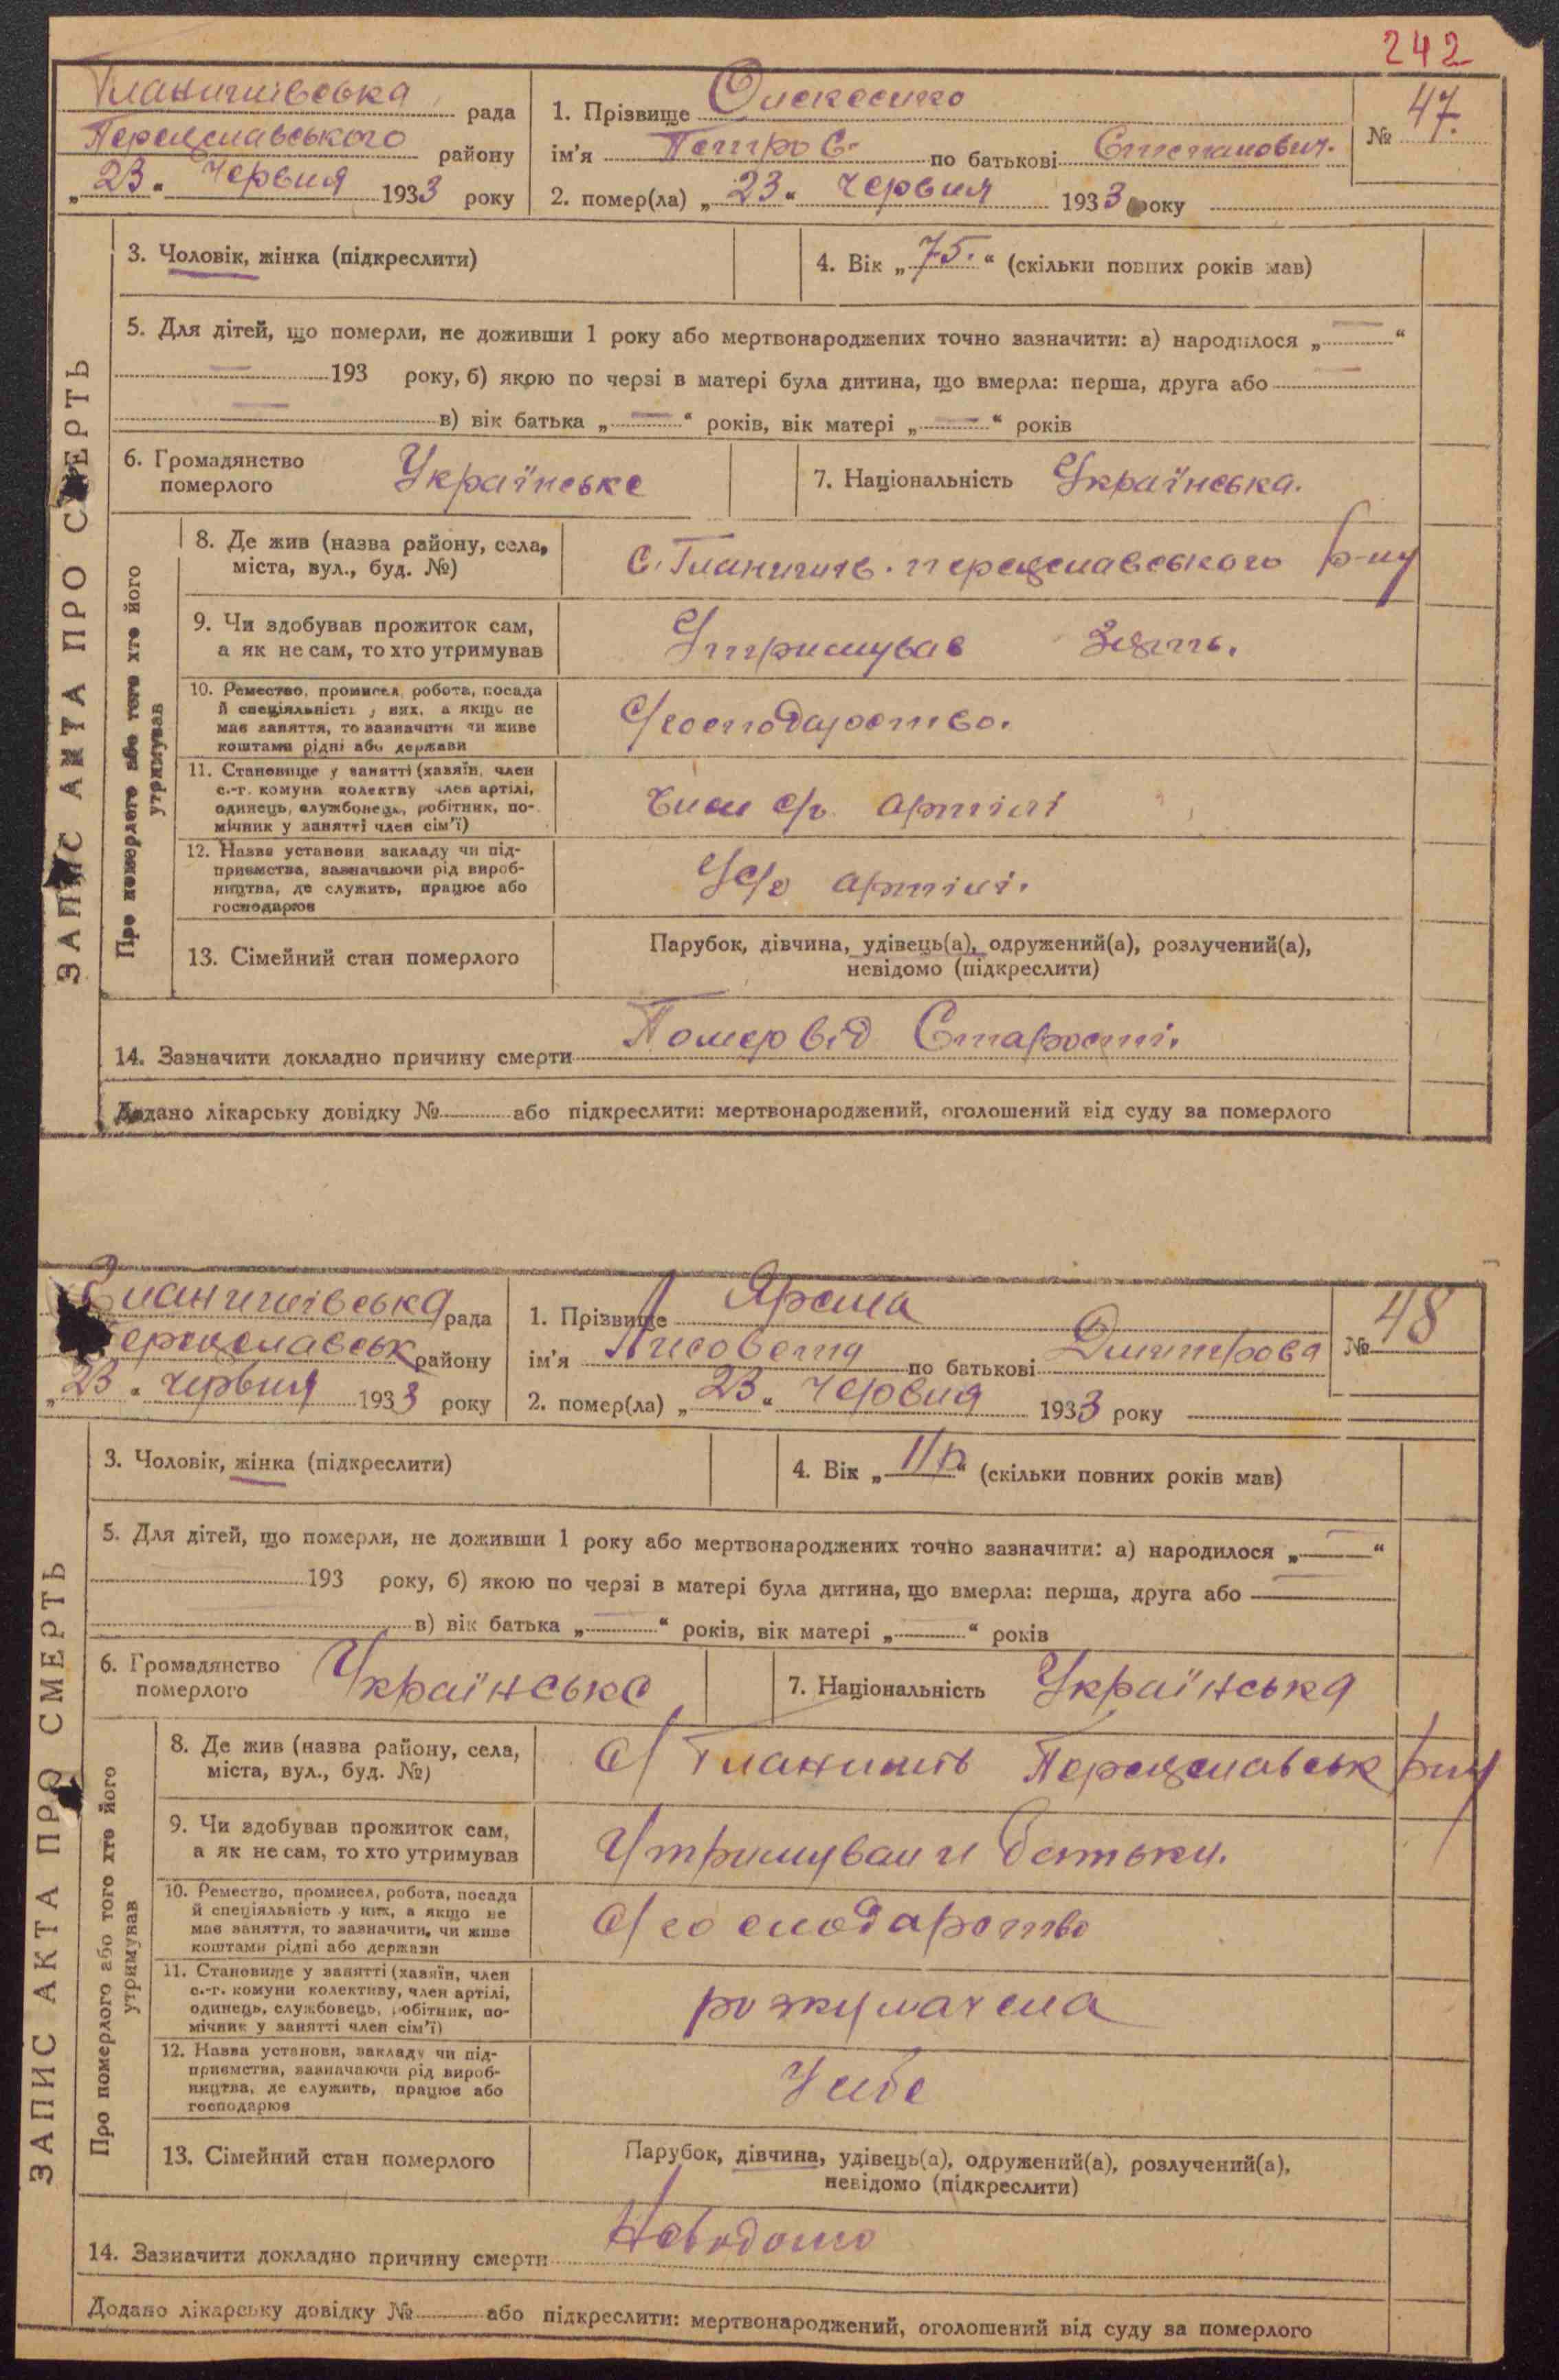 242
Гланишівська рада
Переяславського району
„23“ Червня 1933 року
1. Прізвище
ім'я Петро С. по батькові Степанович.
2. помер(ла) „23“ червня 1933 року
№ 47.
ЗАПИС АКТА ПРО СМЕРТЬ
3. Чоловік, жінка (підкреслити)
4. Вік „75.“ (скільки повних років мав)
5. Для дітей, що померли, не доживши 1 року або мертвонароджених точно зазначити: а) народилося „—“
— 193 року, б) якою по черзі в матері була дитина, що вмерла: перша, друга або —
— в) вік батька „—“ років, вік матері „—“ років
6. Громадянство
померлого
Українське
7. Національність Українська.
Про померлого або того хто його
утримував
8. Де жив (назва району, села,
міста, вул., буд. №)
С. Гланишів. переяславського р-ну
9. Чи здобував прожиток сам,
а як не сам, то хто утримував
Утримував Зять.
10. Ремество, промисел, робота, посада
й спеціяльність у них, а якщо не
має заняття, то зазначити чи живе
коштами рідні або держави
С/господарство.
11. Становище у занятті (хазяїн, член
с.-г. комуни колективу член артілі,
одинець, службовець, робітник, по-
мічник у занятті член сім'ї)
Член с/г. артілі
12. Назва установи закладу чи під-
приємства, зазначаючи рід вироб-
ництва, де служить, працює або
господарює
У С/г артілі.
13. Сімейний стан померлого
Парубок, дівчина, удівець(а), одружений(а), розлучений(а),
невідомо (підкреслити)
14. Зазначити докладно причину смерти Помер від Старості.
Додано лікарську довідку № або підкреслити: мертвонароджений, оголошений від суду за померлого
Гланишівська рада
Переяславськ району
„23“ червня 1933 року
1. Прізвище Ярема
ім'я Лисовета по батькові Дмитрова
2. помер(ла) „23“ червня 1933 року
№ 48
ЗАПИС АКТА ПРО СМЕРТЬ
3. Чоловік, жінка (підкреслити)
4. Вік „11 р“ (скільки повних років мав)
5. Для дітей, що померли, не доживши 1 року або мертвонароджених точно зазначити: а) народилося „—“
193 року, б) якою по черзі в матері була дитина, що вмерла: перша, друга або —
в) вік батька „—“ років, вік матері „—“ років
6. Громадянство
померлого
Українське
7. Національність Українська
Про померлого або того хто його
утримував
8. Де жив (назва району, села,
міста, вул., буд. №)
С/ Гланишів Переяславськ р-ну
9. Чи здобував прожиток сам,
а як не сам, то хто утримував
Утримували батьки.
10. Ремество, промисел, робота, посада
й спеціяльність у них, а якщо не
має заняття, то зазначити, чи живе
коштами рідні або держави
С/господарство
11. Становище у занятті (хазяїн, член
с.-г. комуни колективу, член артілі,
одинець, службовець, робітник, по-
мічник у занятті член сім'ї)
розкулачена
12. Назва установи, закладу чи під-
приємства, зазначаючи рід вироб-
ництва, де служить, працює або
господарює
У себе
13. Сімейний стан померлого
Парубок, дівчина, удівець(а), одружений(а), розлучений(а),
невідомо (підкреслити)
14. Зазначити докладно причину смерти Невідомо
Додано лікарську довідку № або підкреслити: мертвонароджений, оголошений від суду за померлого